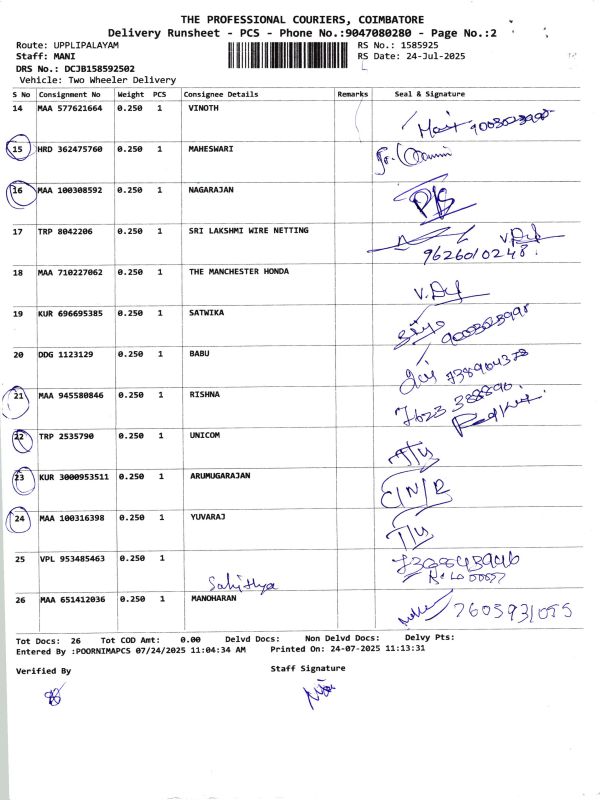 THE PROFESSIONAL COURIERS, COIMBATORE
Delivery Runsheet - PCS - Phone No.:9047080280 - Page No.:2
Route: UPPLIPALAYAM RS No.: 1585925
Staff: MANI RS Date: 24-Jul-2025
DRS No.: DCJB158592502
Vehicle: Two Wheeler Delivery
S No Consignment No Weight PCS Consignee Details Remarks Seal & Signature
14 MAA 577621664 0.250 1 VINOTH
15 HRD 362475760 0.250 1 MAHESWARI
16 MAA 100308592 0.250 1 NAGARAJAN
17 TRP 8042206 0.250 1 SRI LAKSHMI WIRE NETTING
9626010248.
18 MAA 710227062 0.250 1 THE MANCHESTER HONDA
19 KUR 696695385 0.250 1 SATWIKA
20 DDG 1123129 0.250 1 BABU
21 MAA 945580846 0.250 1 RISHNA
22 TRP 2535790 0.250 1 UNICOM
23 KUR 3000953511 0.250 1 ARUMUGARAJAN
C/N/R
24 MAA 100316398 0.250 1 YUVARAJ
25 VPL 953485463 0.250 1
Sahithya
26 MAA 651412036 0.250 1 MANOHARAN 7605931055
Tot Docs: 26 Tot COD Amt: 0.00 Delvd Docs: Non Delvd Docs: Delvy Pts:
Entered By :POORNIMAPCS 07/24/2025 11:04:34 AM Printed On: 24-07-2025 11:13:31
Verified By Staff Signature